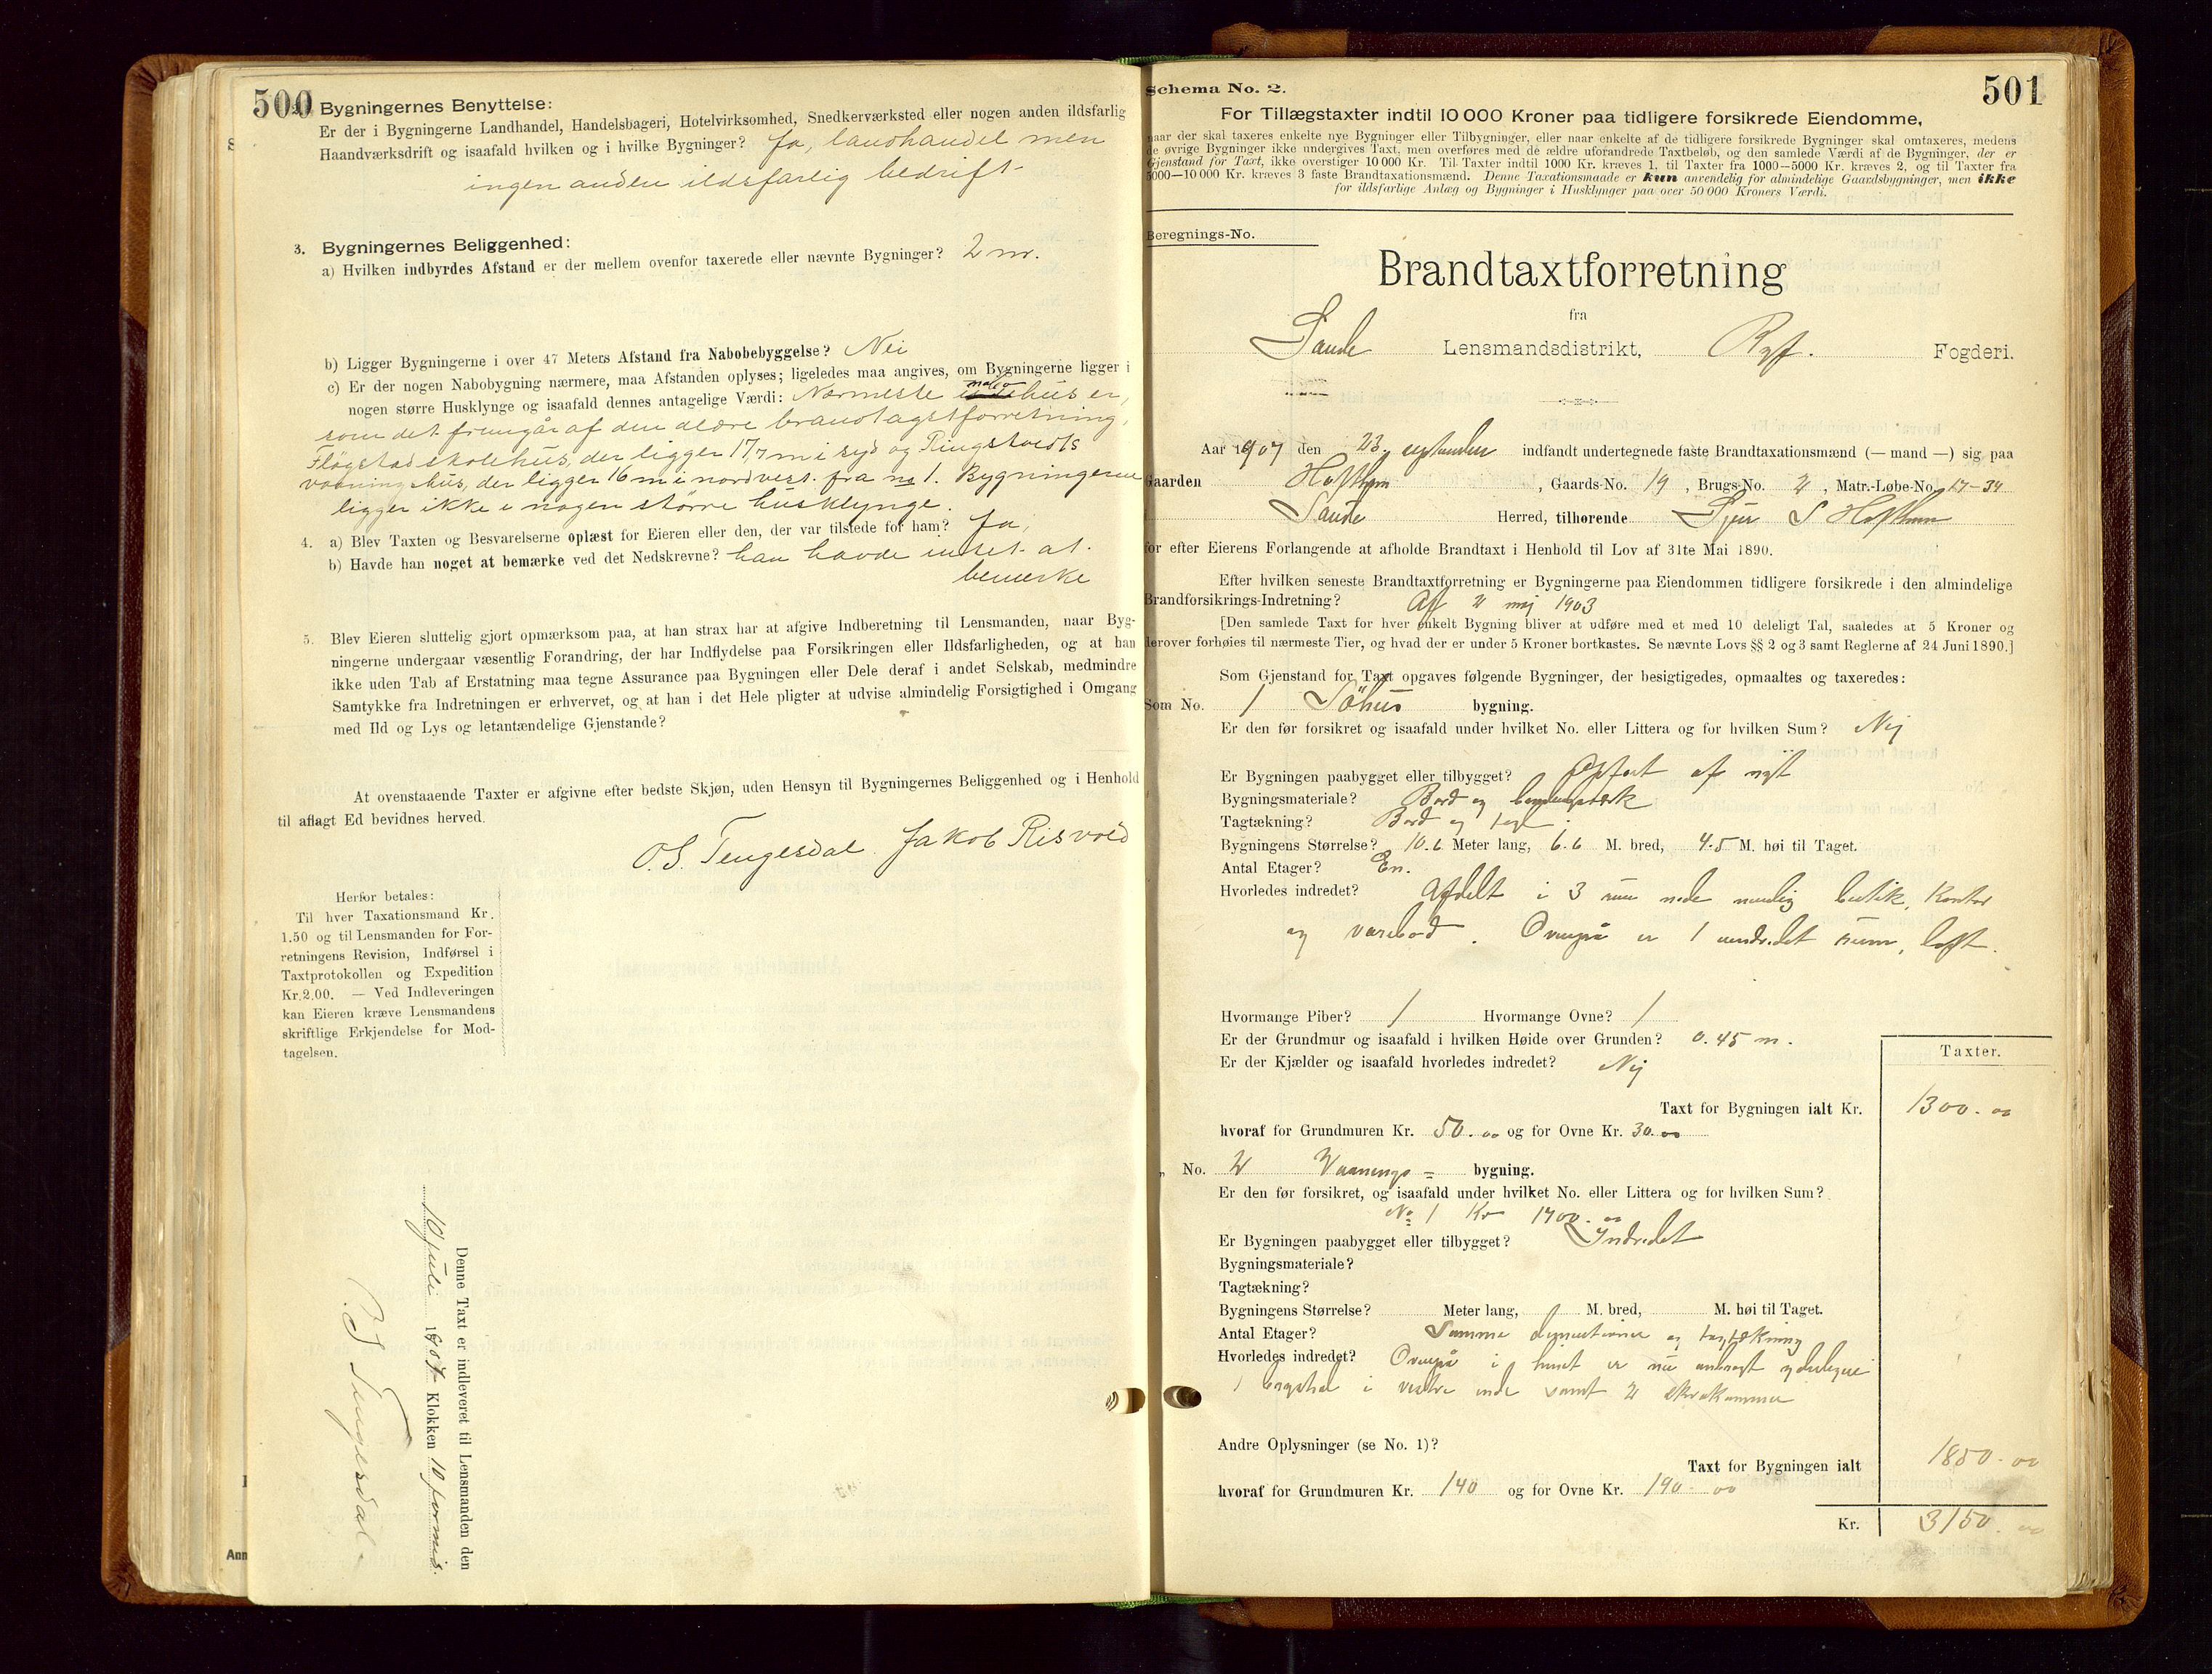 500
Bygningernes Benyttelse:
Er der i Bygningerne Landhandel, Handelsbageri, Hotelvirksomhed, Snedkerværksted eller nogen anden ildsfarlig
Haandværksdrift og isaafald hvilken og i hvilke Bygninger? Ja, landhandel men
ingen anden ildsfarlig bedrift
3. Bygningernes Beliggenhed:
a) Hvilken indbyrdes Afstand er der mellem ovenfor taxerede eller nævnte Bygninger? 2 m.
b) Ligger Bygningerne i over 47 Meters Afstand fra Nabobebyggelse? Nei
c) Er der nogen Nabobygning nærmere, maa Afstanden oplyses; ligeledes maa angives, om Bygningerne ligger i
nogen større Husklynge og isaafald dennes antagelige Værdi: Nærmeste nabohus er,
som det fremgår af den ældre brandtagstforretning,
Fløgstad skolehus, der ligger 17,7 m i syd og Ringstvedts
vaaningshus, der ligger 16 m i nordvest fra no 1. Bygningerne
ligger ikke i nogen større husklynge.
4. a) Blev Taxten og Besvarelserne oplæst for Eieren eller den, der var tilstede for ham? Ja,
b) Havde han noget at bemærke ved det Nedskrevne? han havde intet at
bemerke
5. Blev Eieren sluttelig gjort opmærksom paa, at han strax har at afgive Indberetning til Lensmanden, naar Byg-
ningerne undergaar væsentlig Forandring, der har Indflydelse paa Forsikringen eller Ildsfarligheden, og at han
ikke uden Tab af Erstatning maa tegne Assurance paa Bygningen eller Dele deraf i andet Selskab, medmindre
Samtykke fra Indretningen er erhvervet, og at han i det Hele pligter at udvise almindelig Forsigtighed i Omgang
med Ild og Lys og letantændelige Gjenstande?
At ovenstaaende Taxter er afgivne efter bedste Skjøn, uden Hensyn til Bygningernes Beliggenhed og i Henhold
til aflagt Ed bevidnes herved.
O. S. Tengesdal Jakob Risvold
Herfor betales:
Til hver Taxationsmand Kr.
1.50 og til Lensmanden for For-
retningens Revision, Indførsel i
Taxtprotokollen og Expedition
Kr. 2.00. — Ved Indleveringen
kan Eieren kræve Lensmandens
skriftlige Erkjendelse for Mod-
tagelsen.
Denne Taxt er indleveret til Lensmanden den
10 juli 1907 Klokken 10 formid.
Tengesdal
Schema No. 2.
501
For Tillægstaxter indtil 10 000 Kroner paa tidligere forsikrede Eiendomme,
naar der skal taxeres enkelte nye Bygninger eller Tilbygninger, eller naar enkelte af de tidligere forsikrede Bygninger skal omtaxeres, medens
de øvrige Bygninger ikke undergives Taxt, men overføres med de ældre uforandrede Taxtbeløb, og den samlede Værdi af de Bygninger, der er
Gjenstand for Taxt, ikke overstiger 10 000 Kr. Til Taxter indtil 1000 Kr. kræves 1, til Taxter fra 1000—5000 Kr. kræves 2, og til Taxter fra
5000—10 000 Kr. kræves 3 faste Brandtaxationsmænd. Denne Taxationsmaade er kun anvendelig for almindelige Gaardsbygninger, men ikke
for ildsfarlige Anlæg og Bygninger i Husklynger paa over 50 000 Kroners Værdi.
Beregnings-No.
Brandtaxtforretning
fra
Saude Lensmandsdistrikt, Ryf. Fogderi.
Aar 1907 den 23 september indfandt undertegnede faste Brandtaxationsmænd (— mand —) sig paa
Gaarden Hofthun, Gaards-No. 19, Brugs-No. 2, Matr.-Løbe-No. 17-34
Saude Herred, tilhørende Sjur S Hofthun
for efter Eierens Forlangende at afholde Brandtaxt i Henhold til Lov af 31te Mai 1890.
Efter hvilken seneste Brandtaxtforretning er Bygningerne paa Eiendommen tidligere forsikrede i den almindelige
Brandforsikrings-Indretning? Af 2 mj 1903
[Den samlede Taxt for hver enkelt Bygning bliver at udføre med et med 10 deleligt Tal, saaledes at 5 Kroner og
derover forhøies til nærmeste Tier, og hvad der er under 5 Kroner bortkastes. Se nævnte Lovs §§ 2 og 3 samt Reglerne af 24 Juni 1890.]
Som Gjenstand for Taxt opgaves følgende Bygninger, der besigtigedes, opmaaltes og taxeredes:
Som No. 1 Söhus bygning.
Er den før forsikret og isaafald under hvilket No. eller Littera og for hvilken Sum? Nej
Er Bygningen paabygget eller tilbygget? Opført af nyt
Bygningsmateriale? Bord og bindingsværk
Tagtækning? Bord og tegl
Bygningens Størrelse? 10.6 Meter lang, 6.6 M. bred, 4.5 M. høi til Taget.
Antal Etager? En.
Hvorledes indredet? Afdelt i 3 rum nede nemlig butik, kontor
og varebod. Ovenpå er 1 uindredet rum, loft.
Hvormange Piber? 1 Hvormange Ovne? 1
Er der Grundmur og isaafald i hvilken Høide over Grunden? 0.45 m.
Er der Kjælder og isaafald hvorledes indredet? Nej
Taxter.
Taxt for Bygningen ialt Kr. 1300.00
hvoraf for Grundmuren Kr. 50.00 og for Ovne Kr. 30.00
" No. 2 Vaanings= bygning.
Er den før forsikret, og isaafald under hvilket No. eller Littera og for hvilken Sum?
No 1 Kr 1700.00
Er Bygningen paabygget eller tilbygget? Indredet
Bygningsmateriale?
Tagtækning?
Bygningens Størrelse? Meter lang, M. bred, M. høi til Taget.
Antal Etager? Samme dimentioner og tagtækning
Hvorledes indredet? Ovenpå i huset er nu anbragt yderligere
1 i vestre ende samt 2 skråkammer
Andre Oplysninger (se No. 1)?
Taxt for Bygningen ialt 1850.00
hvoraf for Grundmuren Kr. 140 og for Ovne Kr. 190.00
Kr. 3150.00